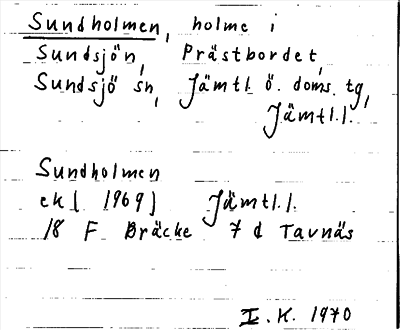 Sundholmen, holme i
Sundsjön, Prästbordet,
Sundsjö sn, Jämtl. ö. doms. tg,
Jämtl.l.
Sundholmen
ek [1969] Jämtl.l.
18 F Bräcke 7 d Tavnäs
I.K. 1970